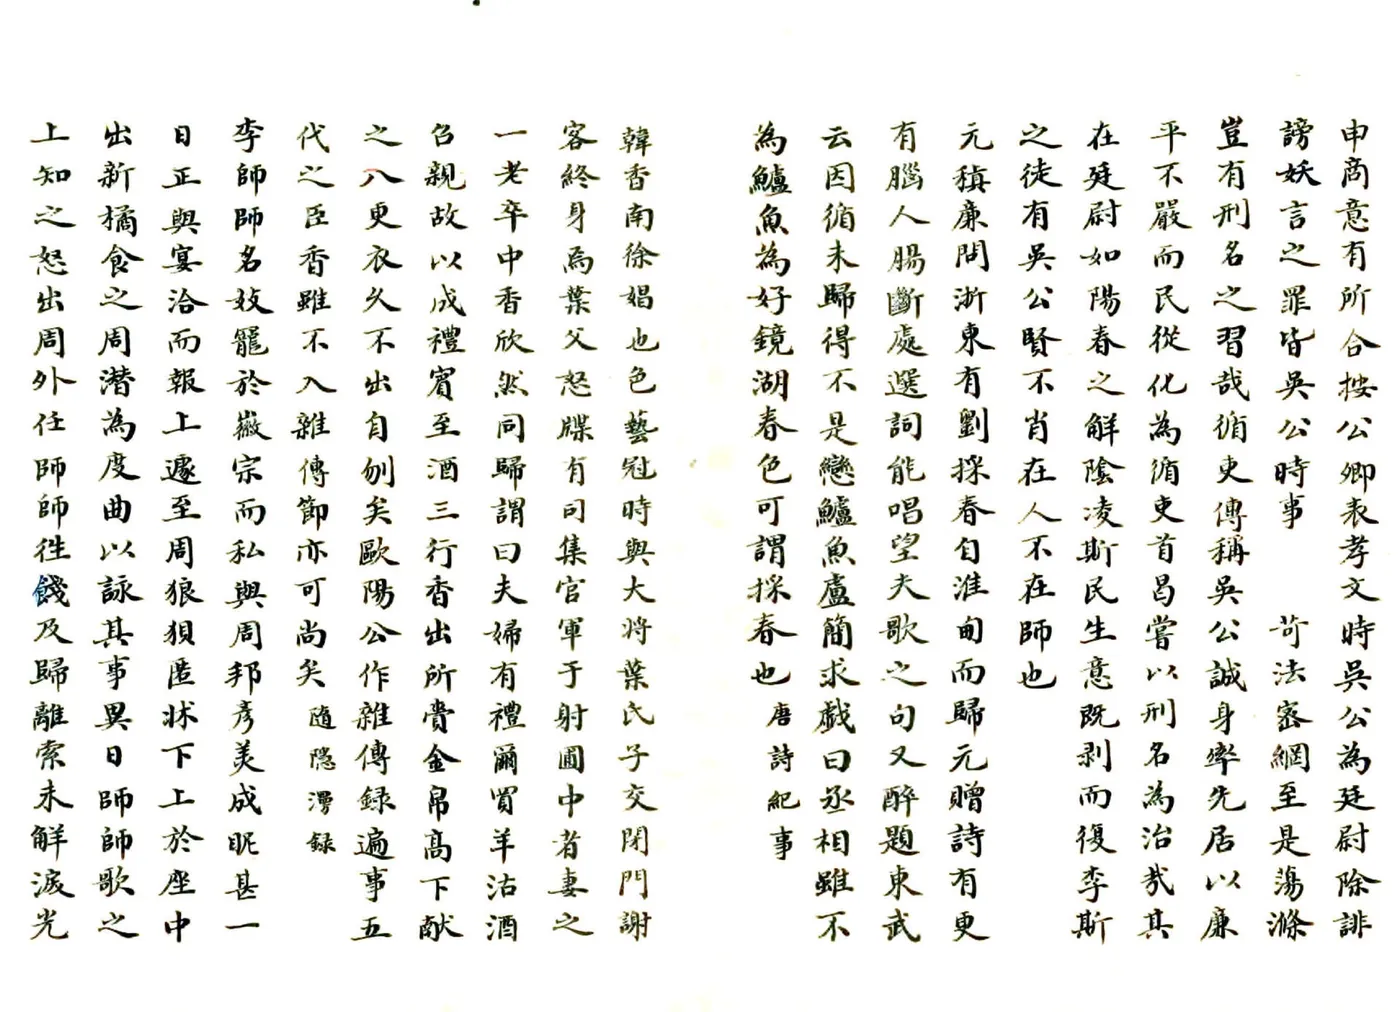 申商意有所合按公卿表孝文時吳公為廷尉除誹
謗妖言之罪皆吳公時事 苛法密網至是蕩滌
豈有刑名之習哉循吏傳稱吳公誠身率先居以廉
平不嚴而民從化為循吏首曷嘗以刑名為治哉其
在廷尉如陽春之解陰凌斯民生意既剥而復李斯
之徒有吳公賢不肖在人不在師也
元稹廉問浙東有劉採春自淮甸而歸元贈詩有更
有腦人腸斷處選詞能唱望夫歌之句又醉題東武
云因循未歸得不是戀鱸魚盧簡求戲曰丞相雖不
為鱸魚為好鏡湖春色可謂採春也 唐詩紀事
韓香南徐娼也色藝冠時與大將葉氏子交閉門謝
客終身焉葉父怒牒有司集官軍于射圃中者妻之
一老卒中香欣然同歸謂曰夫婦有禮爾買羊沽酒
召親故以成禮賓至酒三行香出所賫金帛高下献
之入更衣久不出自刎矣歐陽公作雜傳録遍事五
代之臣香雖不入雜傳節亦可尚矣 隨隠漫録
李師師名妓寵於徽宗而私與周邦彦美成昵甚一
日正與宴洽而報上遽至周狼狽匿牀下上於座中
出新橘食之周潜為度曲以詠其事異日師師歌之
上知之怒出周外任師師徃餞及歸離索未解淚光